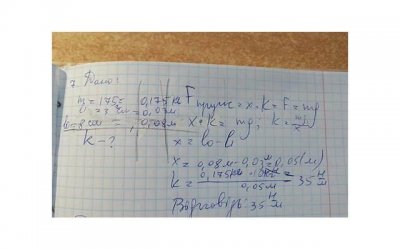 7. Дано:
m = 175г = 0,175кг
l₀ = 3 см = 0,03м
l₁ = 8 см = 0,08м
k - ?
Fпруж = x·k = F = mg
x·k = mg; k = mg/x
x = l₀ - l₁
x = 0,08м - 0,03м = 0,05(м)
k = 0,175кг · 10 / 0,05м = 35 Н/м
Відповідь: 35 Н/м